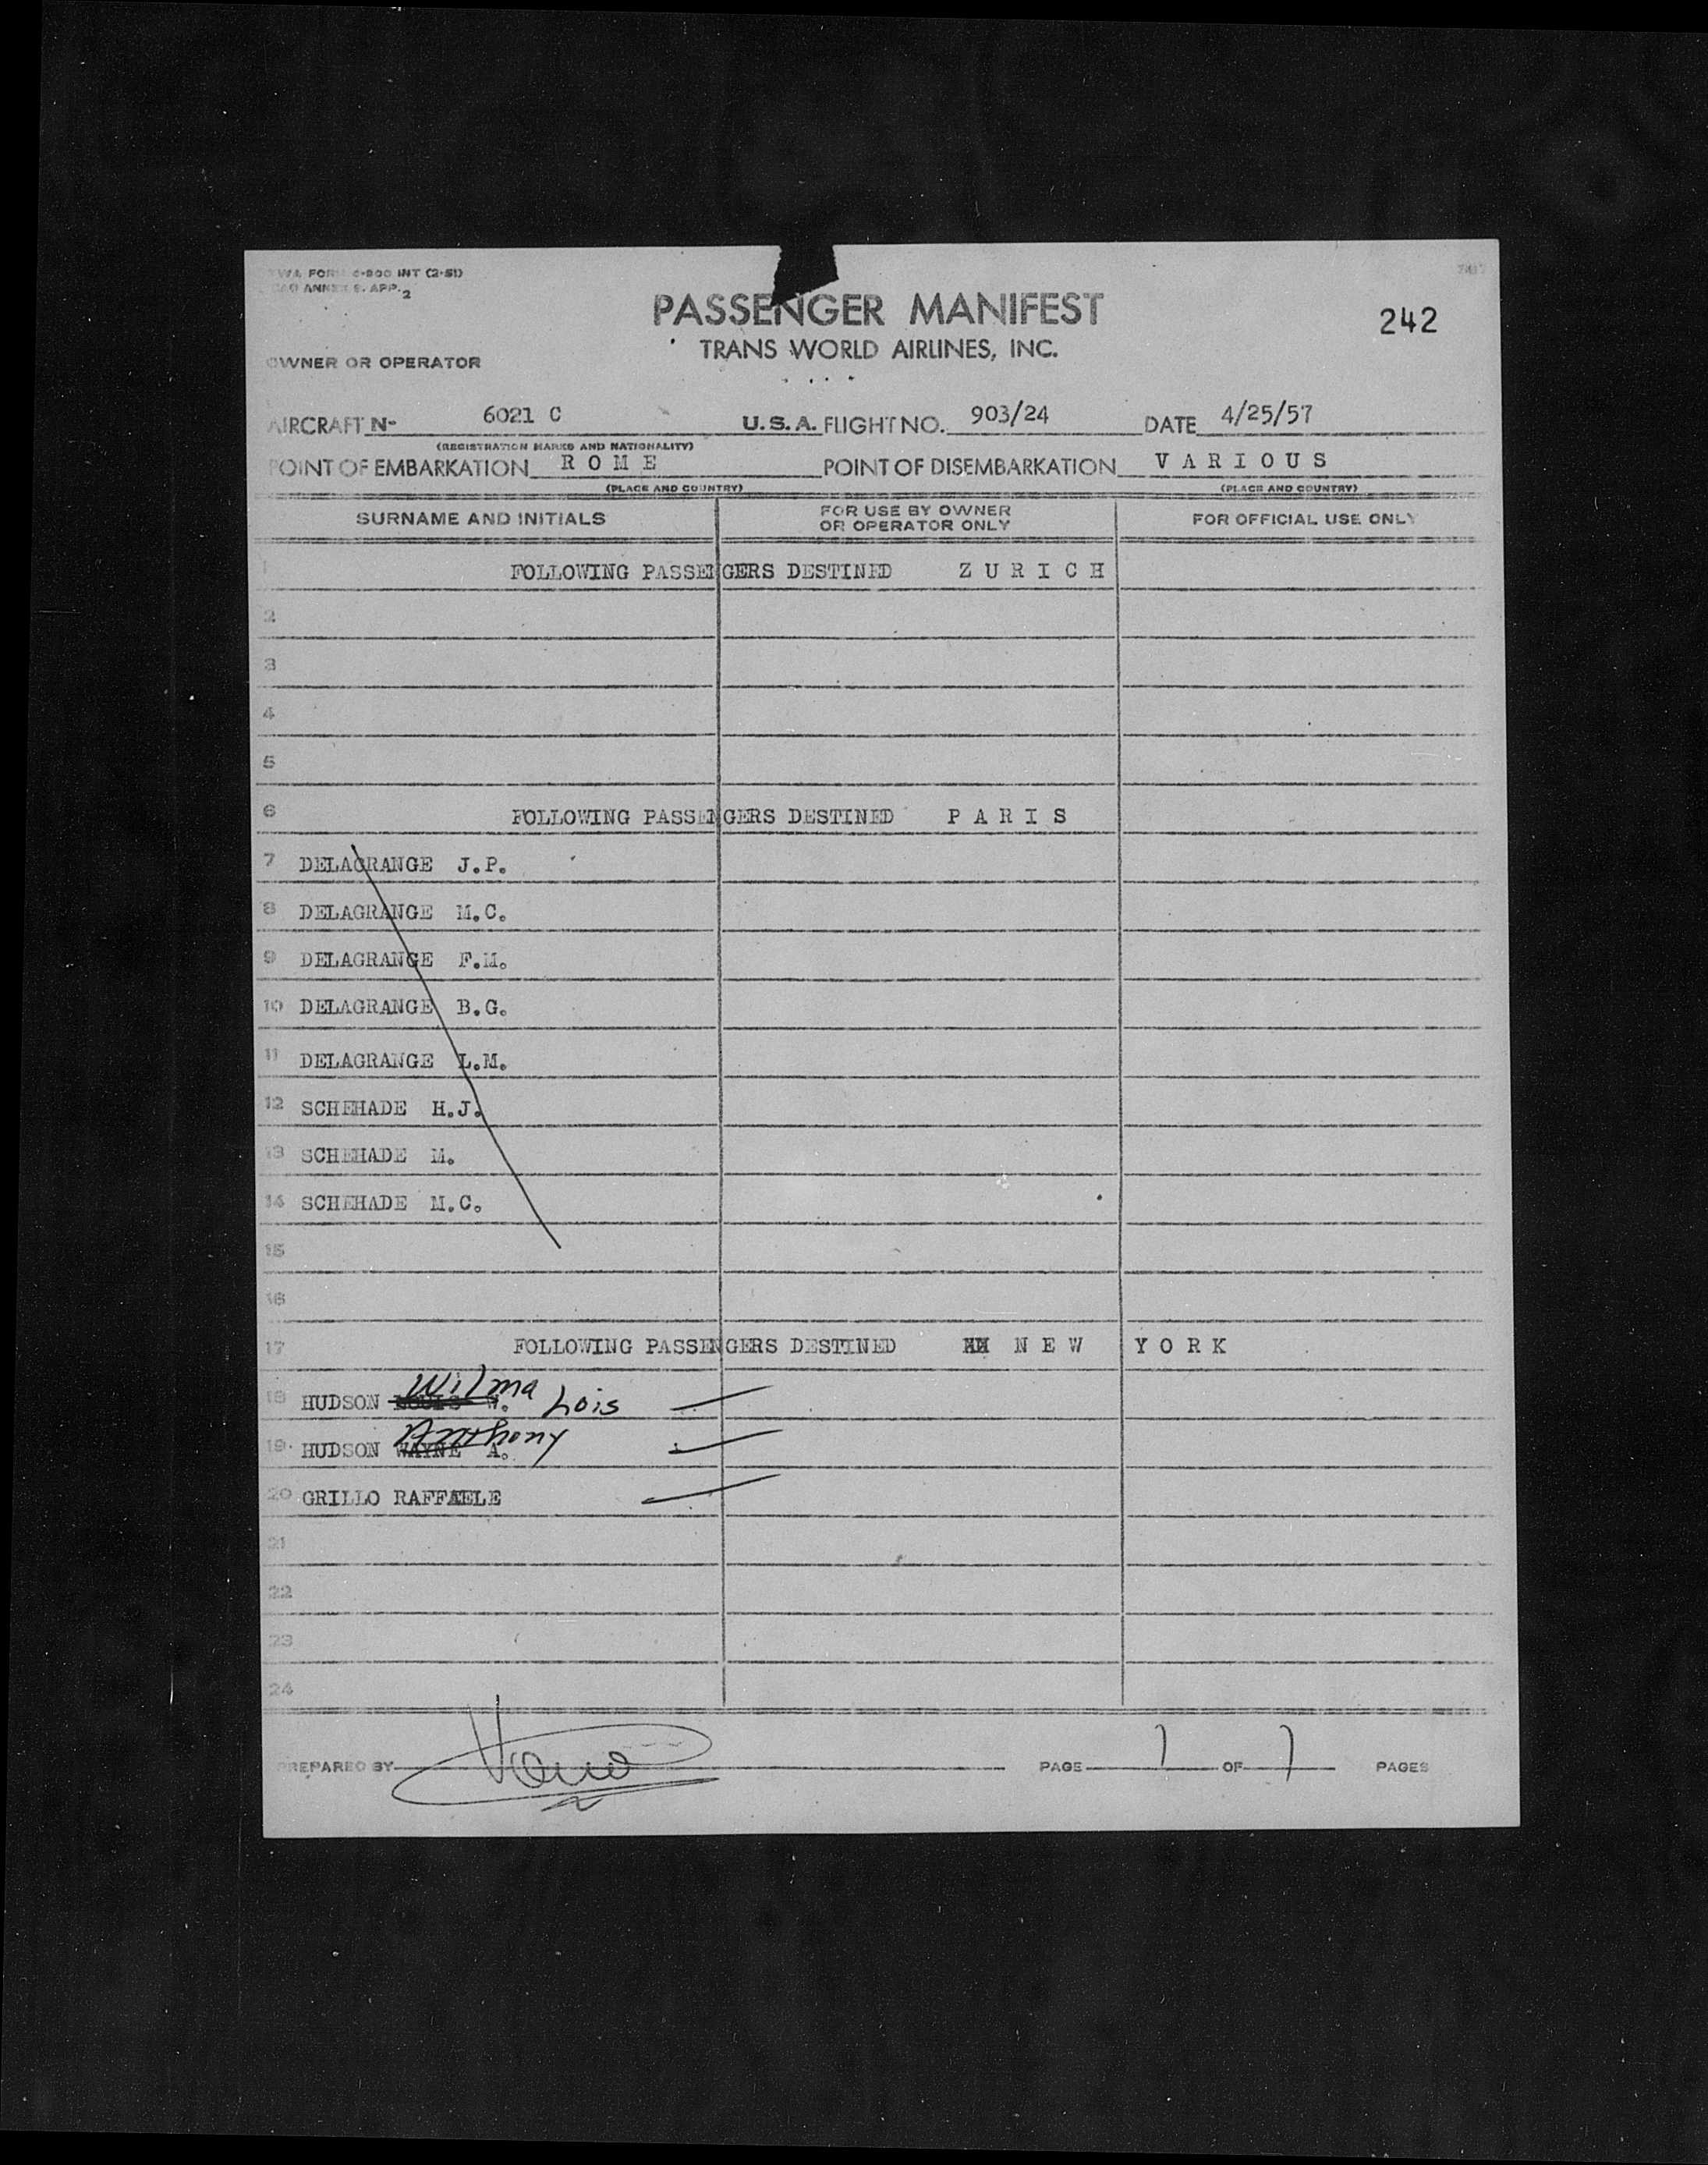 TWA FORM C-800 INT (2-51)
ICAO ANNEX 9. APP. 2
PASSENGER MANIFEST
242
TRANS WORLD AIRLINES, INC.
OWNER OR OPERATOR
AIRCRAFT N- 6021 C U.S.A. FLIGHT NO. 903/24 DATE 4/25/57
(REGISTRATION MARKS AND NATIONALITY)
POINT OF EMBARKATION R O M E POINT OF DISEMBARKATION V A R I O U S
(PLACE AND COUNTRY) (PLACE AND COUNTRY)
SURNAME AND INITIALS FOR USE BY OWNER OR OPERATOR ONLY FOR OFFICIAL USE ONLY
1 FOLLOWING PASSENGERS DESTINED Z U R I C H
2
3
4
5
6 FOLLOWING PASSENGERS DESTINED P A R I S
7 DELAGRANGE J.P.
8 DELAGRANGE M.C.
9 DELAGRANGE F.M.
10 DELAGRANGE B.G.
11 DELAGRANGE L.M.
12 SCHEHADE H.J.
13 SCHEHADE M.
14 SCHEHADE M.C.
15
16
17 FOLLOWING PASSENGERS DESTINED N E W Y O R K
Wilma
18 HUDSON W. Lois
Anthony
19 HUDSON WAYNE A.
20 GRILLO RAFFAELE
21
22
23
24
PREPARED BY PAGE 1 OF 1 PAGES